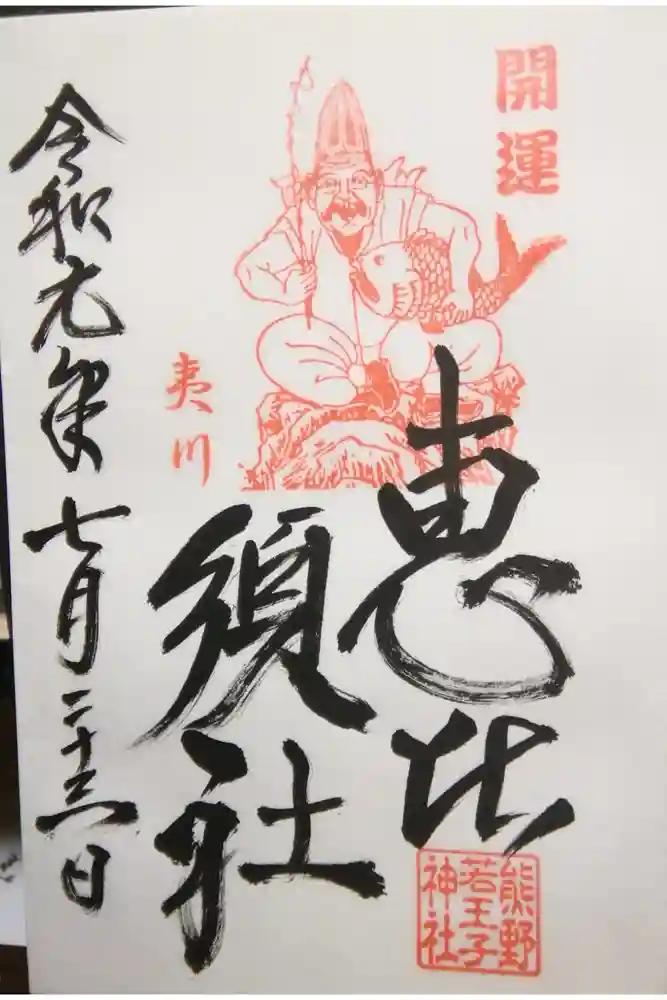 開運
恵比
須社
夷川
令和元年七月二十三日
熊野
若王子
神社